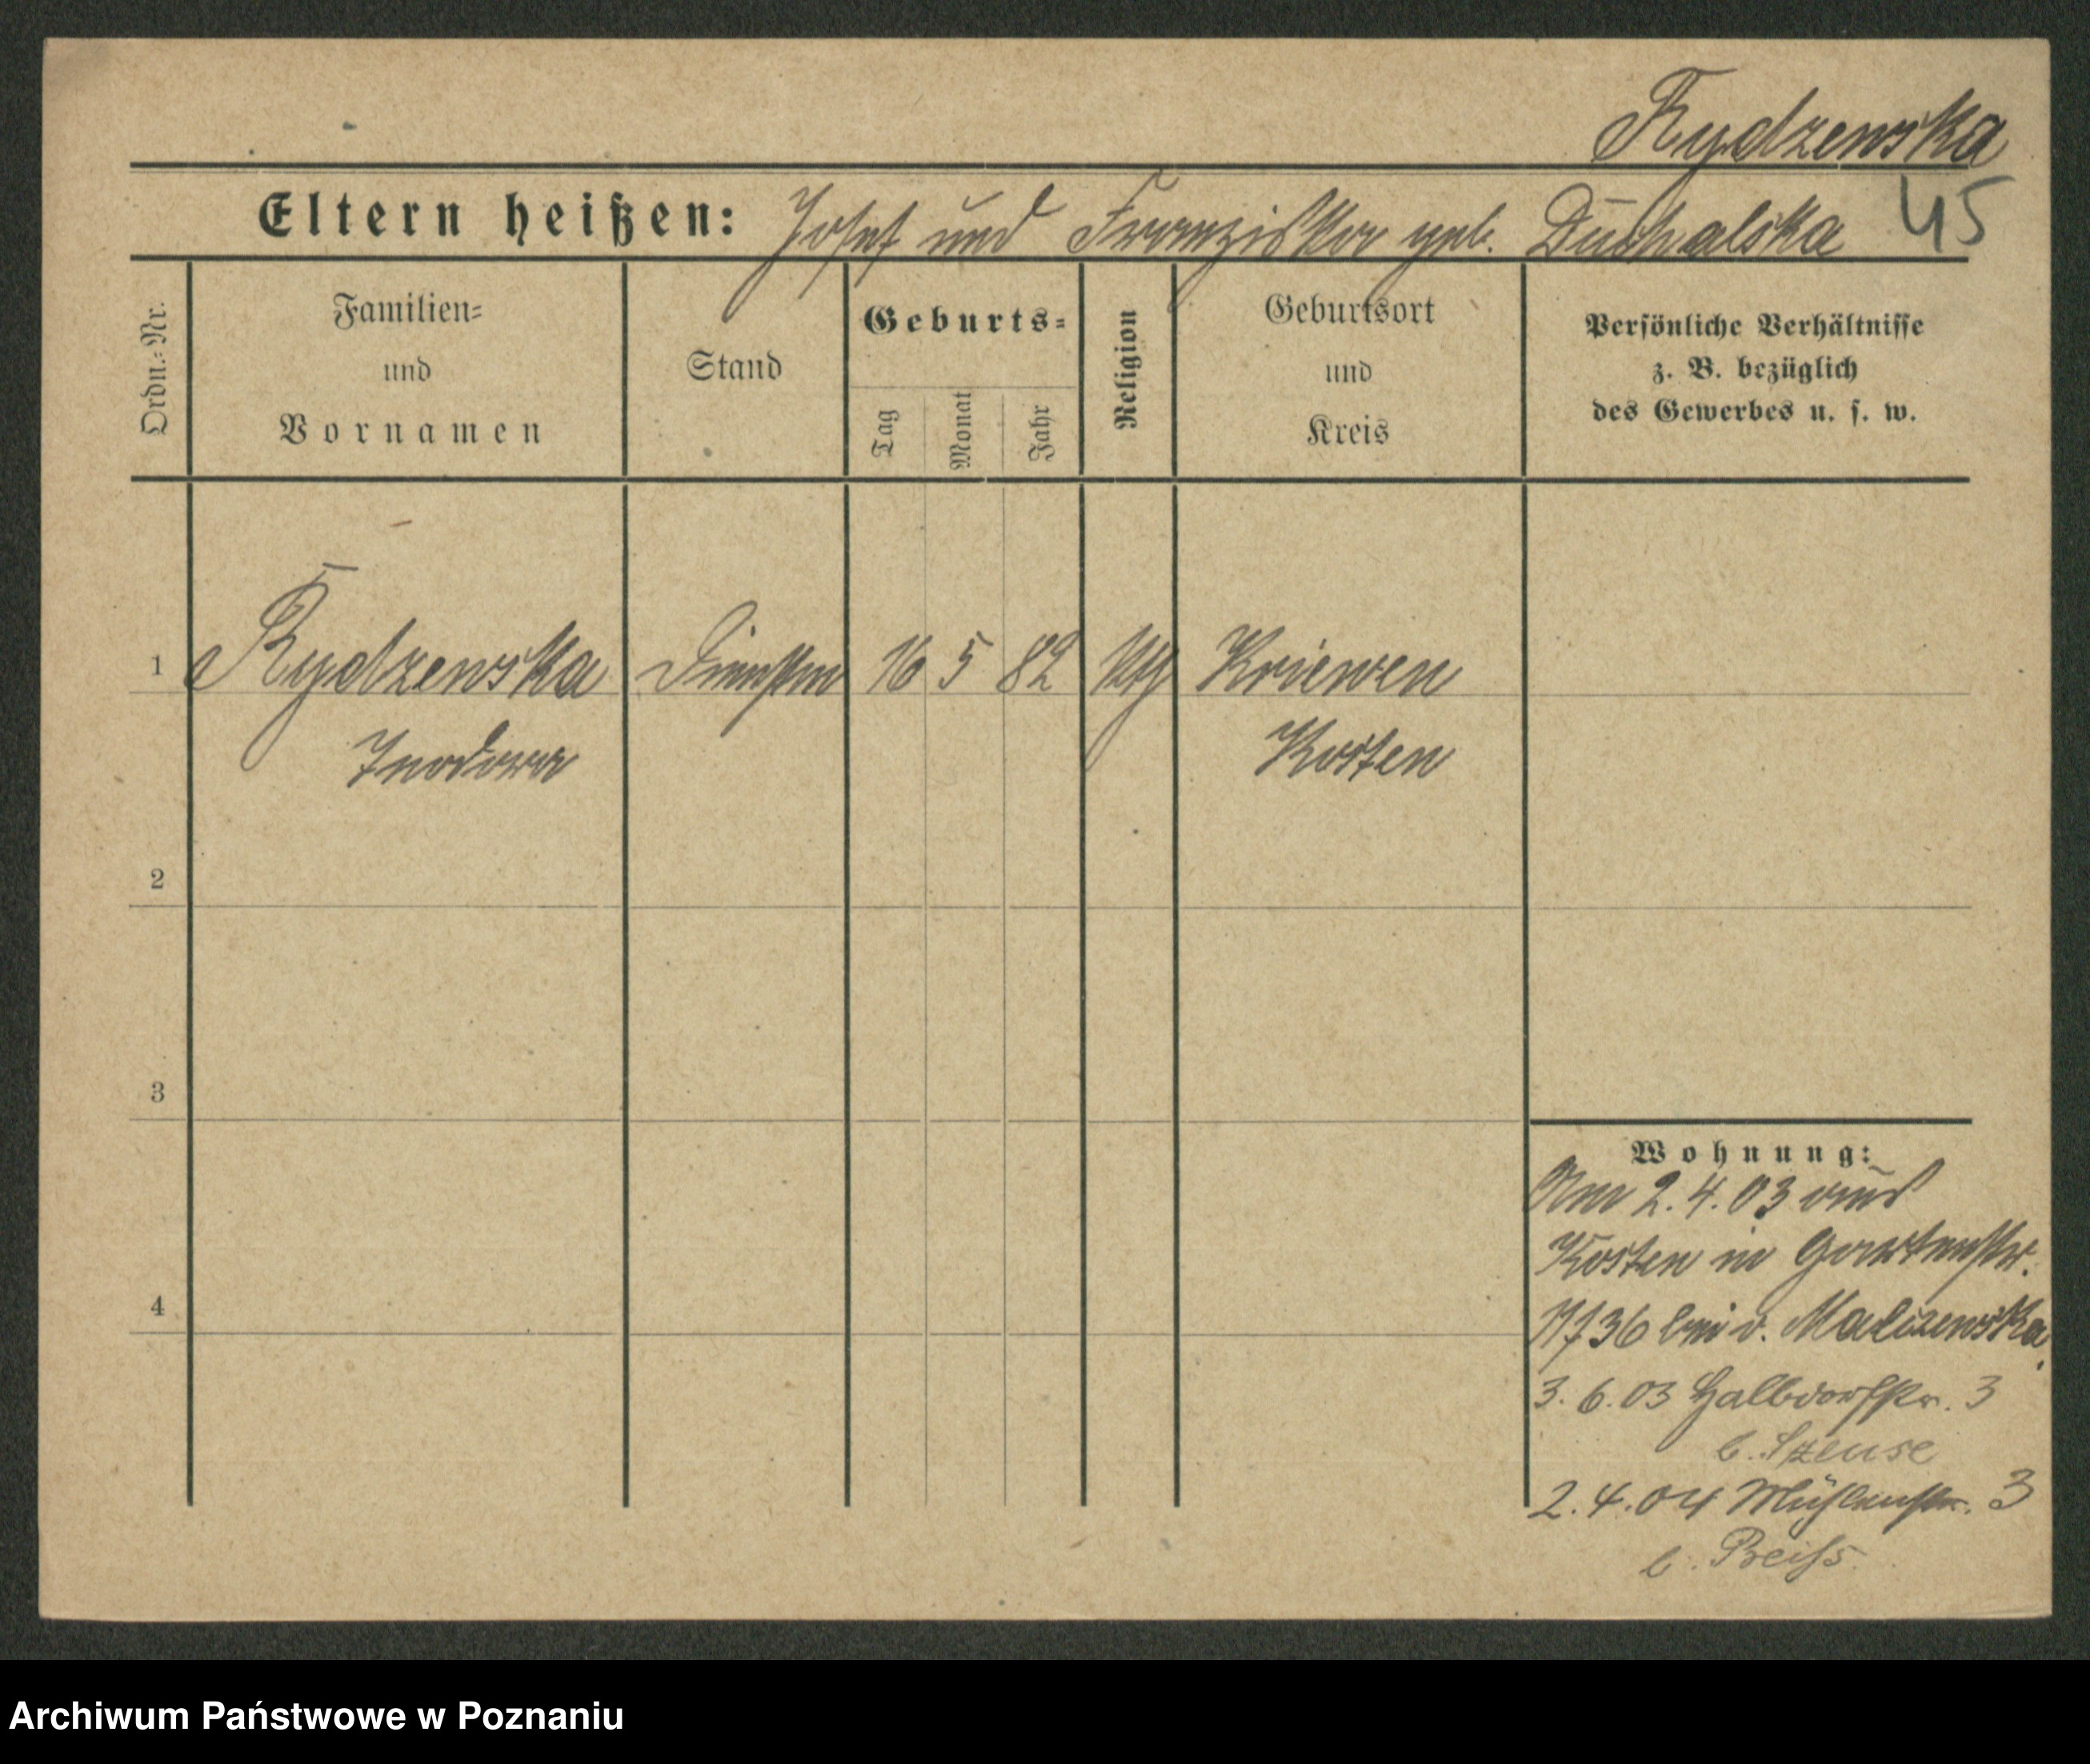 Rydzewska
Eltern heißen: Josef und Franziska geb. Duchalska 45
Ordn.-Nr.
Familien-
und
Vornamen
Stand
Geburts-
Tag
Monat
Jahr
Religion
Geburtsort
und
Kreis
Persönliche Verhältnisse
z. B. bezüglich
des Gewerbes u. s. w.
1 Rydzewska 16 5 82 Kriewen
Kosten
2
3
4
Wohnung:
Am 2.4.03 aus
Kosten in Gartenstr.
bei v.
3.6.03 Halbdorfstr. 3
b.
2.4.04 Mühlenstr. 3
b. Preiss
Archiwum Państwowe w Poznaniu